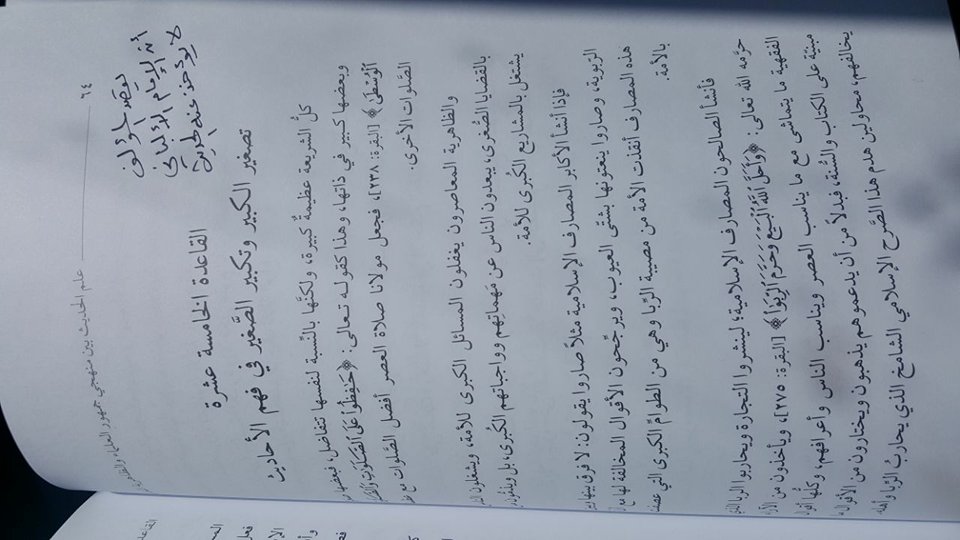 ٦٤ علم الحديث بين منهجي جمهور العلماء
القاعدة الخامسة عشرة
تصغير الكبير وتكبير الصَّغير في فهم الأحاديث
كلُّ الشريعة عظيمةٌ كبيرة، ولكنَّها بالنّسبة لنفسها تتفاضل فبعضها
وبعضها كبير في ذاتها، وهذا كقوله تعالى: ﴿حَٰفِظُوا۟ عَلَى ٱلصَّلَوَٰتِ
ٱلْوُسْطَىٰ﴾ [البقرة: ٢٣٨]، فجعل مولانا صلاة العصر أفضل الصَّلوات مع
الصَّلوات الأخرى.
والظاهرية المعاصرون يغفلون المسائل الكبرى للأمة، ويشغلون
بالقضايا الصُّغرى، يبعدون الناس عن مَهمّاتِهم وواجباتهم الكُبرى، بل
يشتغل بالمشاريع الكُبرى للأمة.
فإذا أنشأ الأكابر المصارف الإسلامية مثلاً صاروا يقولون: لا فرق بينها
الربوية، وصاروا ينعتونها بشتّى العيوب، ويرجّحون الأقوال المخالفة لها مع
هذه المصارف أنقذت الأمة من مصيبة الرِّبا وهي من الطوامِّ الكبرى التي
بالأمة.
فأنشأ الصالحون المصارف الإسلامية؛ لينشروا التجارة ويحاربوا الربا
حرَّمه الله تعالى: ﴿وَأَحَلَّ ٱللَّهُ ٱلْبَيْعَ وَحَرَّمَ ٱلرِّبَوٰا۟﴾ [البقرة: ٢٧٥]، ويأخذون من
الفقهية ما يتماشى مع ما يناسب العصر ويناسب الناس وأعرافهم، وكلُّها
مبنيّة على الكتاب والسُّنة، فبدلاً من أن يدعموهم يذهبون ويختارون من الأقوال
يخالفهم، محاولين هدم هذا الصَّرح الإسلامي الشامخ الذي يحارب الرِّبا وأهله